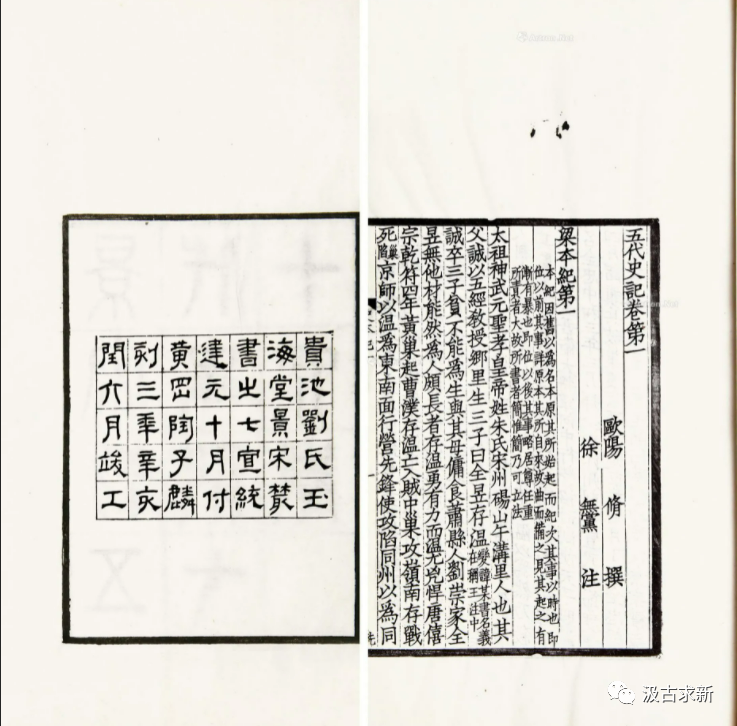 五代史記卷第一
歐陽脩撰
徐無黨注
梁本紀第一
本紀因舊以爲名本原其所始起而紀次其事以時也即
位以前其事詳原本其所自來故曲而備之見其起之有
漸有暴也即位以後其事略居尊任重
所責者大故所書者簡惟簡乃可立法
太祖神武元聖孝皇帝姓朱氏宋州碭山午溝里人也其
父誠以五經教授鄉里生三子曰全昱存温變諱某書名義在稱王注中
誠卒三子貧不能爲生與其母傭食蕭縣人劉崇家全
昱無他材能然爲人頗長者存温勇有力而温尤兇悍唐僖
宗乾符四年黃巢起曹濮存温亡入賊中巢攻嶺南存戰
死巢陷京師以温爲東南面行營先鋒使攻陷同州以爲同
貴池劉氏玉
海堂景宋叢
書之七宣統
建元十月付
黃岡陶子麟
刻三年辛亥
閏六月竣工
汲古求新